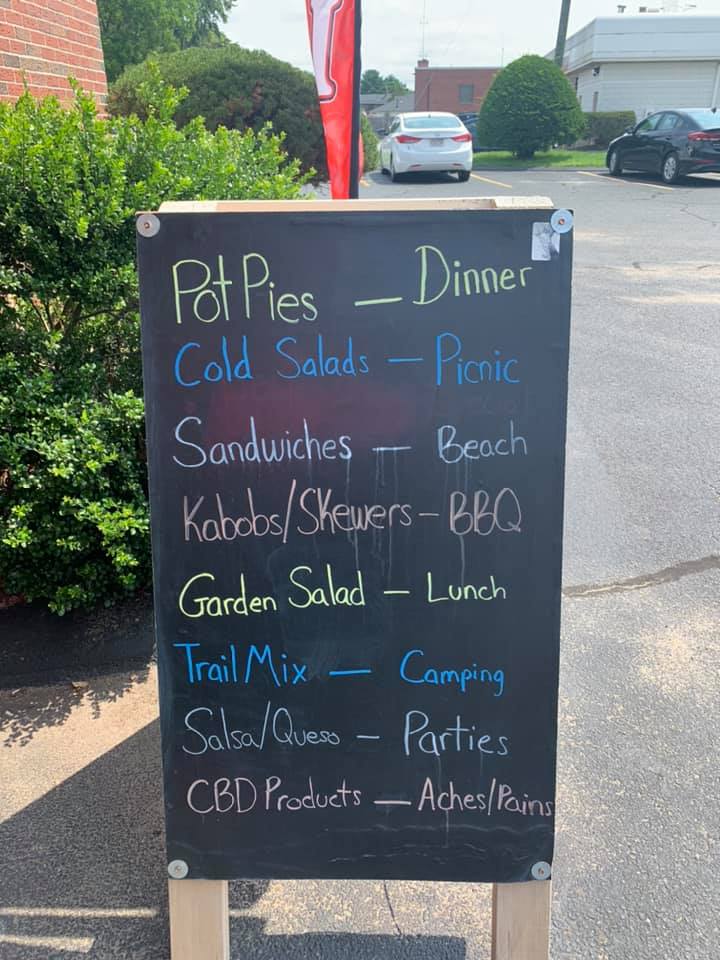 Pot Pies — Dinner
Cold Salads — Picnic
Sandwiches — Beach
Kabobs/Skewers — BBQ
Garden Salad — Lunch
Trail Mix — Camping
Salsa/Queso — Parties
CBD Products — Aches/Pains